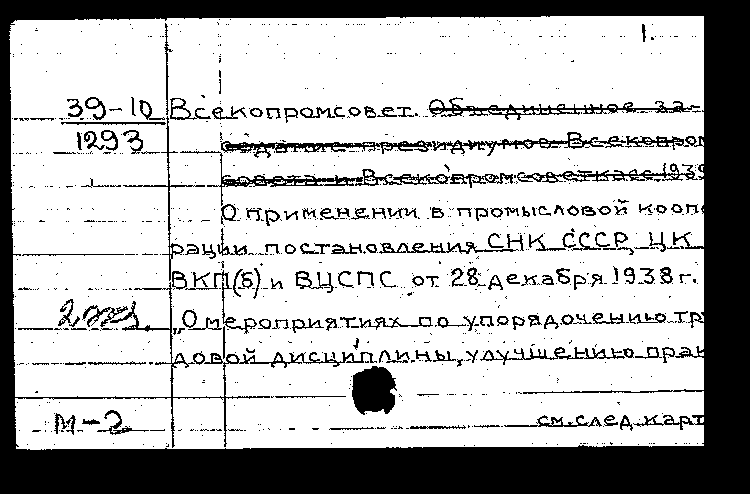 1.
39-10 Всекопромсовет. Объединенное за-
1293 седание президиумов Всекопром
совета и Всекопромсоветкасс 1939
О применении в промысловой кооп
рации постановления СНК СССР, ЦК
ВКП(б) и ВЦСПС от 28 декабря 1938 г.
2 экз. „О мероприятиях по упорядочению тру
довой дисциплины, улучшению прак
М-2 см. след. карт